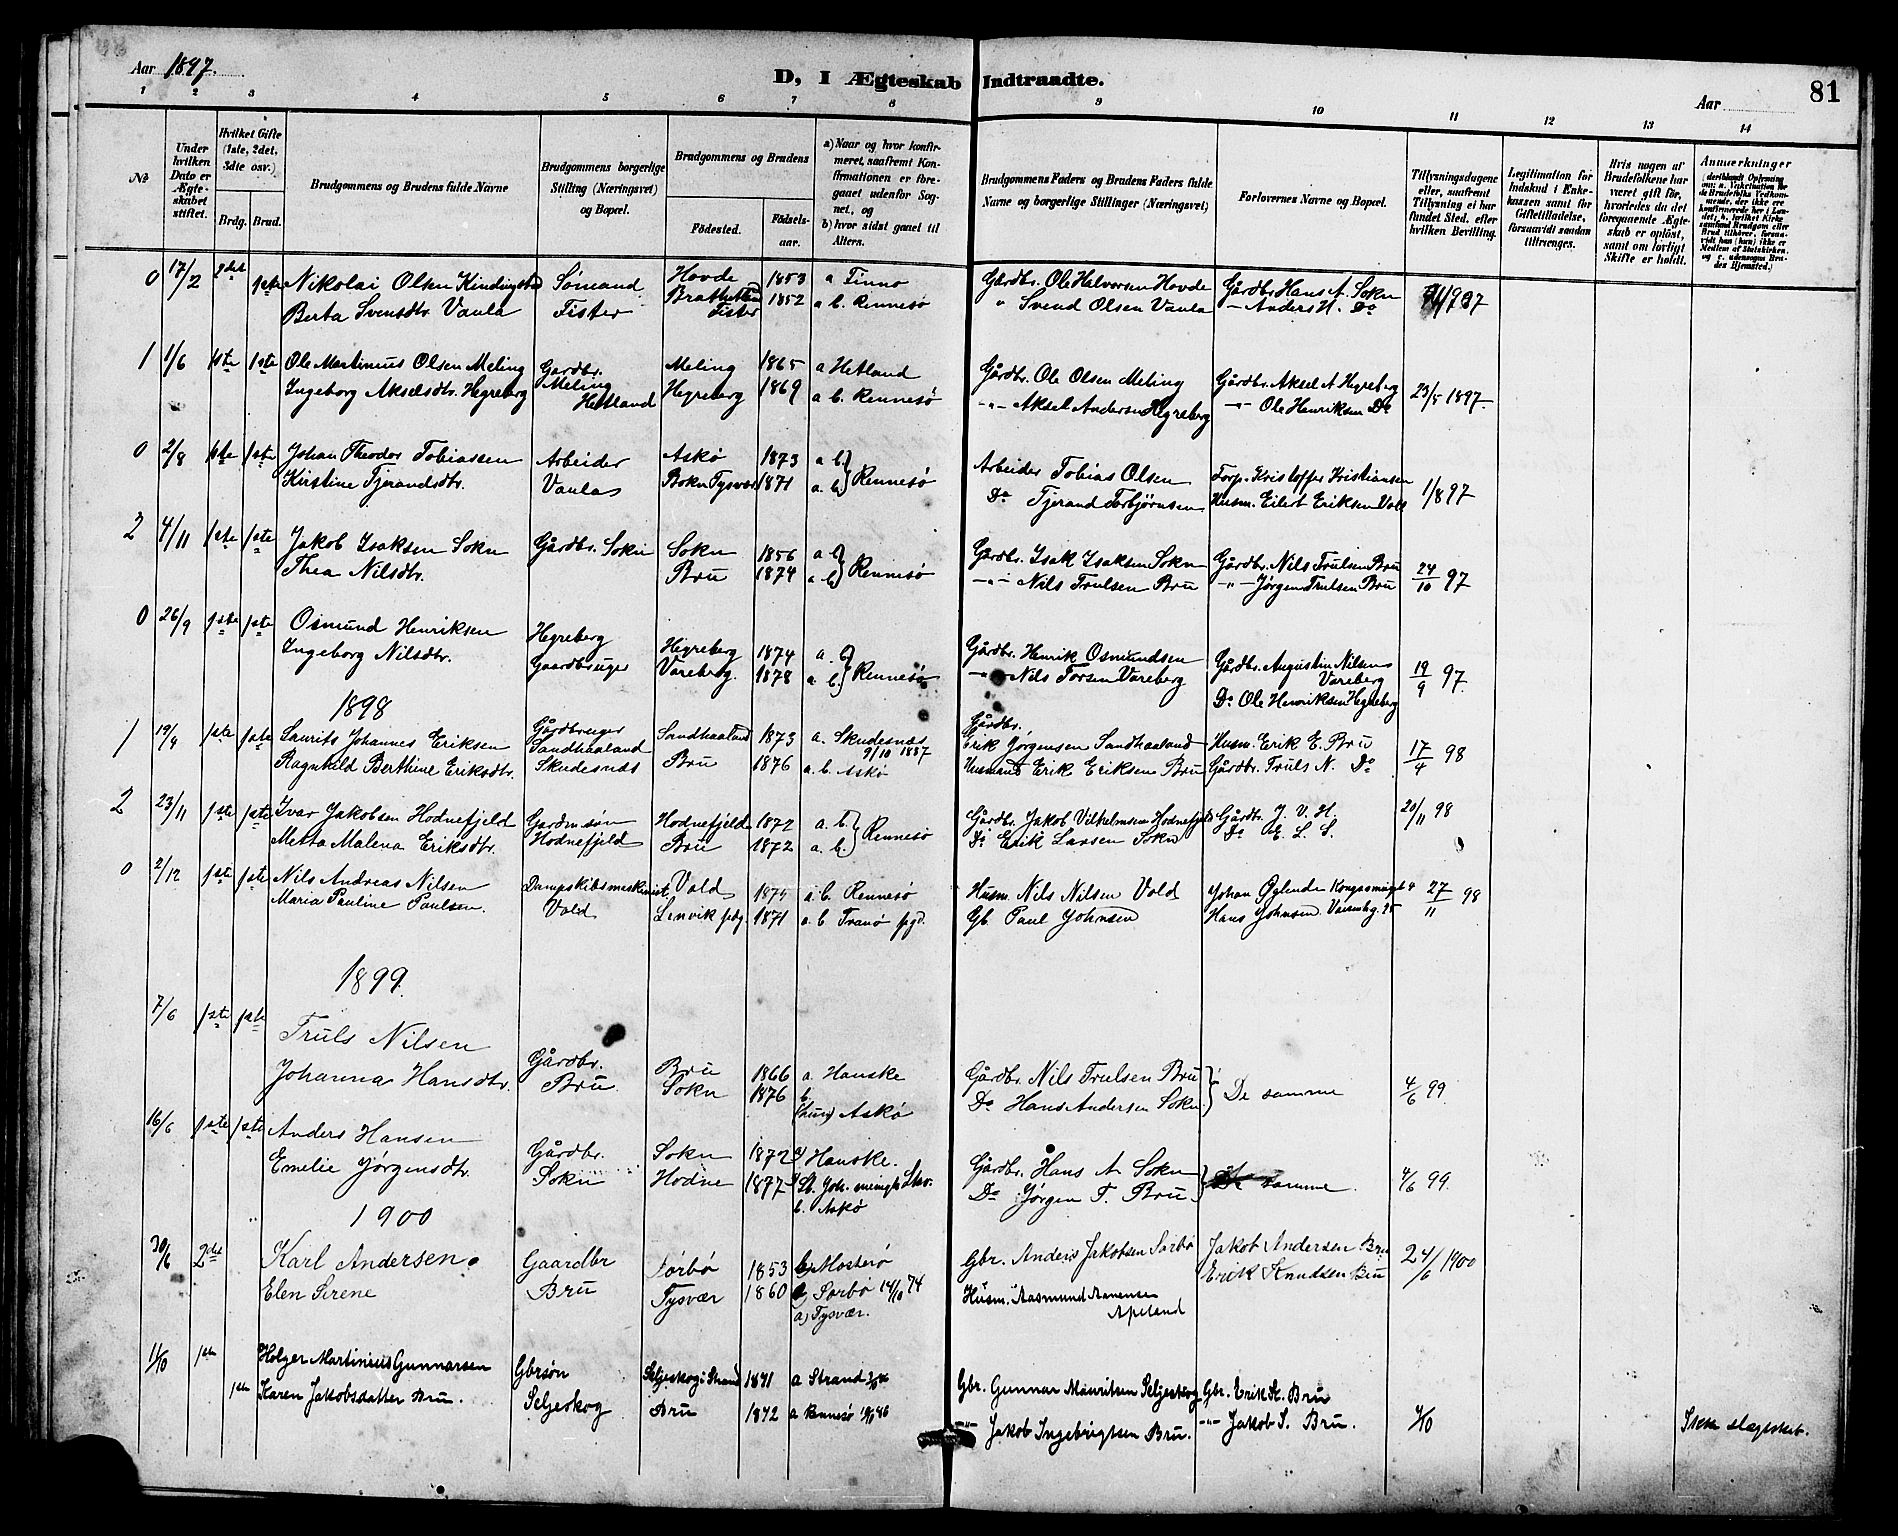 Aar 1897.
D, I Ægteskab Indtraadte.
Aar
81
1 2 3 4 5 6 7 8 9 10 11 12 13 14
No
Under hvilken Dato er Ægteskabet stiftet.
Hvilket Gifte (1ste, 2det, 3die osv.)
Brdg. Brud.
Brudgommens og Brudens fulde Navne
Brudgommens borgerlige Stilling (Næringsvei) og Bopæl.
Brudgommens og Brudens
Födested. Födsels-aar.
a) Naar og hvor konfirmeret, saafremt Konfirmationen er foregaaet udenfor Sognet, og
b) hvor sidst gaaet til Alters.
Brudgommens Faders og Brudens Faders fulde Navne og borgerlige Stillinger (Næringsvei)
Forlovernes Navne og Bopæl.
Tillysningsdagene eller, saafremt Tillysning ei har fundet Sted, efter hvilken Bevilling.
Legitimation for Indskud i Enkekassen samt for Giftetilladelse, forsaavidt saadan tiltrænges.
Hvis nogen af Brudefolkene har været gift för, hvorledes da det foregaaende Ægteskab er oplöst, samt om lovligt Skifte er holdt.
Anmærkninger
0 17/2 2det 1ste Nikolai Olsen Kindingstad Sømand Hovde 1853 a Finnø Gårdbr. Ole Halvorsen Hovde Gårdbr. Hans A. Sokn
Berta Svensdtr. Vaula Fister Fister 1852 a b. Rennesø " Svend Olsen Vaula — Anders H. Do
1 1/6 1ste 1ste Ole Martinius Olsen Meling Gardbr. Meling 1865 a Hetland Gårdbr. Ole Olsen Meling Gårdbr. Aksel A Hegreberg 23/5 1897.
Ingeborg Akselsdtr. Hegreberg Meling Hetland Hegreberg 1869 a b. Rennesø -"- Aksel Andersen Hegreberg -"- Ole Henriksen Do
0 2/8 1ste 1ste Johan Theodor Tobiassen Arbeider Askø 1873 a b. Arbeider Tobias Olsen Forp. Kristoffer Kristiansen 1/8 97
Kirstine Tjerandsdtr. Vaula Bokn Tysvær 1871 a. b. Rennesø Do Tjerand Torbjørnsen Husm. Eilert Eriksen Vold
2 4/11 1ste 1ste Jakob Isaksen Sokn Gårdbr. Sokn Sokn 1856 a b Gårdbr. Isak Isaksen Sokn Gårdbr. Nils Trulsen Bru 24/10 97
Thea Nilsdtr. Bru 1874 a b Rennesø -"- Nils Trulsen Bru -"- Jørgen Trulsen Bru
0 26/9 1ste 1ste Osmund Henriksen Hegreberg Hegreberg 1874 a. b Gårdbr. Henrik Osmundsen Gårdbr. Augustin Nilsen Vareberg 19/9 97.
Ingeborg Nilsdtr. Gaardbruger Vareberg. 1878 a b. Rennesø -"- Nils Torsen Vareberg Do Ole Henriksen Hegreberg
1898
1 19/4 1ste 1ste Laurits Johannes Eriksen Gårdbruger Sandhaaland Sandhaaland 1873 a. Skudesnæs 9/10 1887 Gårdbr. Erik Jørgensen Sandhaaland Husm. Erik E. Bru 17/4 98
Ragnhild Berthine Eriksdtr. Skudesnæs Bru 1876 a. b. Askø Husmand Erik Eriksen Bru Gårdbr. Truls N. Do
2 23/11 1ste 1ste Ivar Jakobsen Hodnefjeld Gardmsøn Hodnefjeld 1872 a. b. Gårdbr. Jakob Vilhelmsen Hodnefjeld Gårdbr. J. V. H. 20/11 98
Metta Malena Eriksdtr. Hodnefjeld Bru 1872 a. b. Rennesø Do Erik Larsen Sokn Do E. L. S.
0 2/12 1ste 1ste Nils Andreas Nilsen Dampskibsmaskinist Vold a. b. Rennesø Husm. Nils Nilsen Vold Johan Øglende 27/11 98
Maria Pauline Paulsen. Vold Lenvik pdg. 1871 a. b Tranø pgd. Gb. Paul Johnsen Hans Johnsen
1899.
7/6 1ste 1ste Truls Nilsen Gårdbr. Bru 1866 a. Hauske Gårdbr. Nils Trulsen Bru De samme 4/6 99.
Johanna Hansdtr. Bru Sokn 1876 b. (hun) Askø Do Hans Andersen Sokn
16/6 1ste 1ste Anders Hansen Gårdbr. Sokn 1872 Hauske. Gårdbr. Hans A. Sokn De samme. 4/6 99.
Emelie Jørgensdtr. Sokn Hodne 1877 b. Askø Do Jørgen T. Bru
1900
30/6 2det Karl Andersen Gaardbr Sørbø 1853 b) Mosterø Gbr. Anders Jakobsen Sørbø Jakob Andersen Bru 24/6 1900
Elen Serene Bru Tysvær 1860 a) Sørbø 14/10 74 Husm. Aasmund Aanensen Apeland Erik Knudsen Bru
a) Tysvær.
11/10 1ste Holger Martinius Gunnarsen Gbrsøn Seljeskog i Strand 1871 a Strand Gbr. Gunnar Mauritsen Seljeskog Gbr. Erik K. Bru
1ste Karen Jakobsdatter Bru. Seljeskog Bru 1872 a Rennesø -"- Jakob Ingebrigtsen Bru. -"- Jakob S. Bru. Ikke slægtskab.